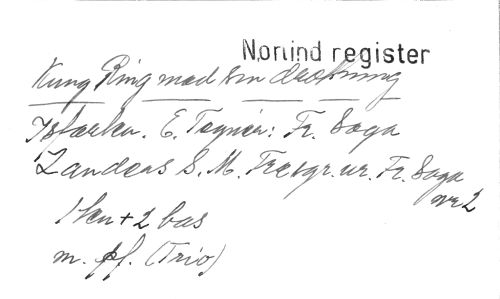 Norlind register
Kung Ring med sin drottning
Isfärden. E. Tegnér: Fr. Saga
Zanders S. M. Tresgr. ur. Fr. Saga
nr 2
1 ten + 2 bas
m. pf. (Trio)